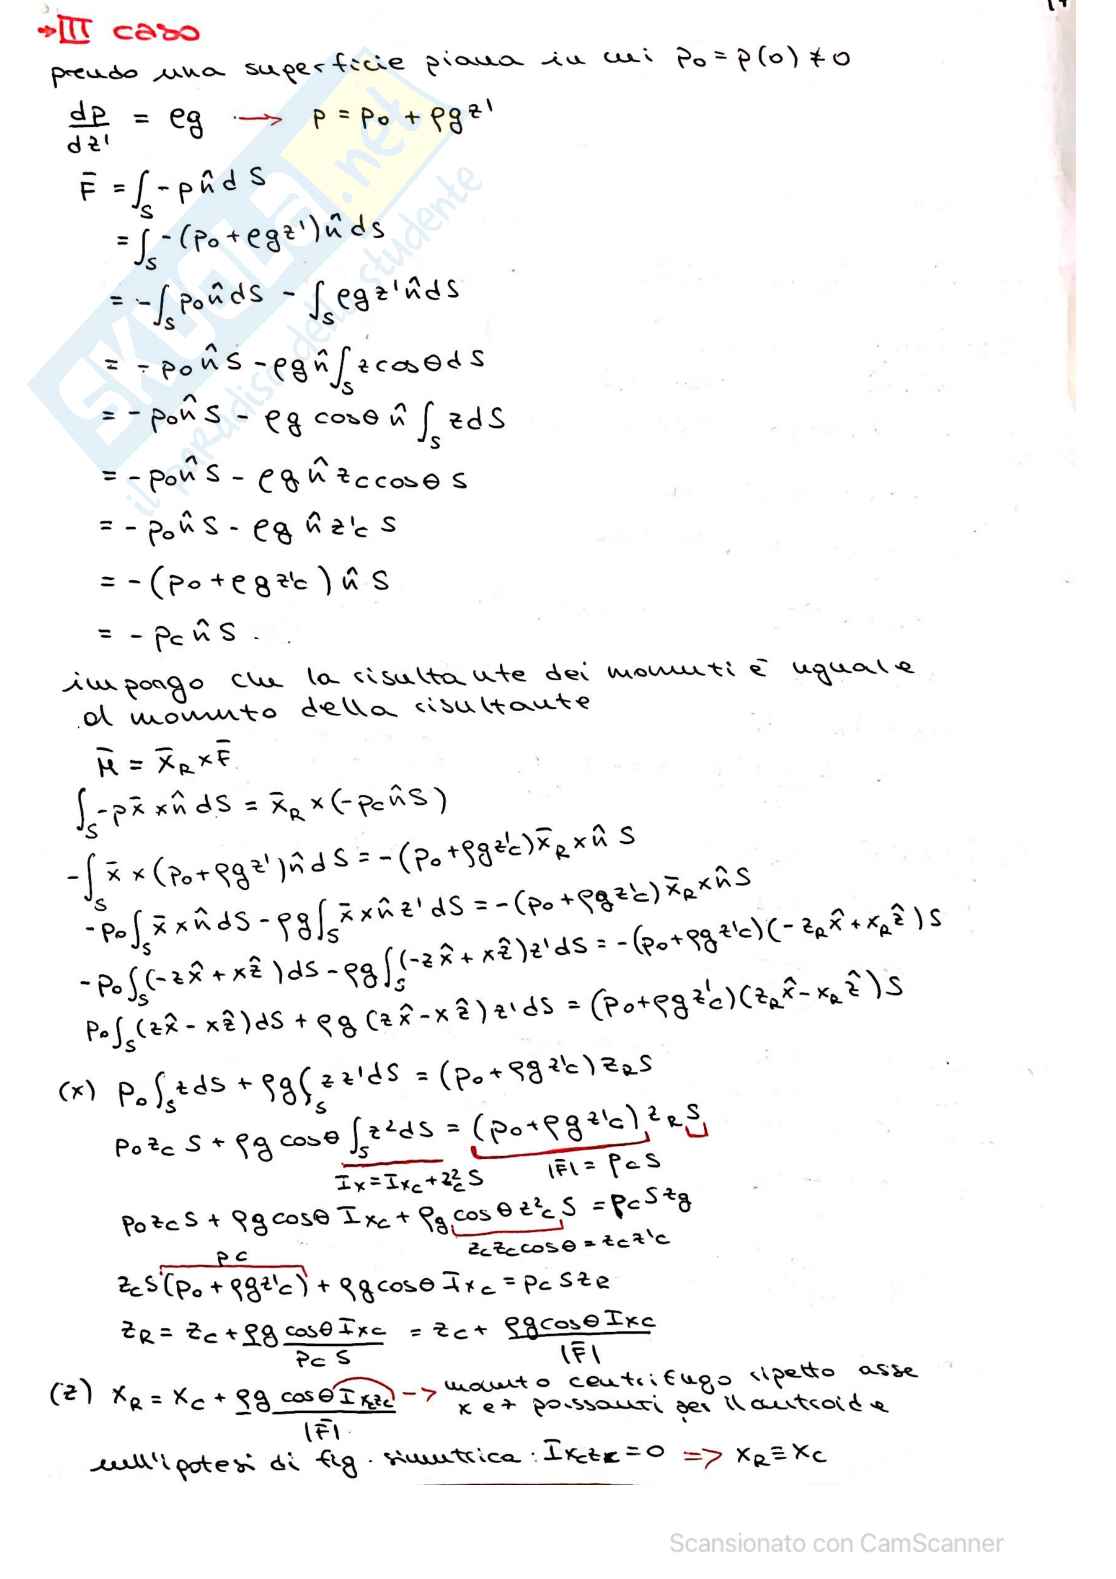 →III caso
prendo una superficie piana in cui p₀ = p(0) ≠ 0
dp/dz' = ρg → p = p₀ + ρgz'
F̄ = ∫_S -p n̂ dS
= ∫_S -(p₀ + ρgz') n̂ dS
= -∫_S p₀ n̂ dS - ∫_S ρgz' n̂ dS
= -p₀ n̂ S - ρg n̂ ∫_S z cosθ dS
= -p₀ n̂ S - ρg cosθ n̂ ∫_S z dS
= -p₀ n̂ S - ρg n̂ z_C cosθ S
= -p₀ n̂ S - ρg n̂ z'_C S
= -(p₀ + ρgz'_C) n̂ S
= -p_C n̂ S.
impongo che la risultante dei momenti è uguale
al momento della risultante
M̄ = x̄_R × F̄
∫_S -p x̄ × n̂ dS = x̄_R × (-p_C n̂ S)
-∫_S x̄ × (p₀ + ρgz') n̂ dS = -(p₀ + ρgz'_C) x̄_R × n̂ S
-p₀ ∫_S x̄ × n̂ dS - ρg ∫_S x̄ × n̂ z' dS = -(p₀ + ρgz'_C) x̄_R × n̂ S
-p₀ ∫_S (-z x̂ + x ẑ) dS - ρg ∫_S (-z x̂ + x ẑ) z' dS = -(p₀ + ρgz'_C)(-z_R x̂ + x_R ẑ) S
p₀ ∫_S (z x̂ - x ẑ) dS + ρg (z x̂ - x ẑ) z' dS = (p₀ + ρgz'_C)(z_R x̂ - x_R ẑ) S
(x) p₀ ∫_S z dS + ρg ∫_S z z' dS = (p₀ + ρgz'_C) z_R S
p₀ z_C S + ρg cosθ ∫_S z² dS = (p₀ + ρgz'_C) z_R S
I_x = I_xC + z²_C S |F̄| = p_C S
p₀ z_C S + ρg cosθ I_xC + ρg cosθ z²_C S = p_C S z_R
p_C z_C z_C cosθ = z_C z'_C
z_C S (p₀ + ρgz'_C) + ρg cosθ I_xC = p_C S z_R
z_R = z_C + ρg cosθ I_xC / p_C S = z_C + ρg cosθ I_xC / |F̄|
(z) x_R = x_C + ρg cosθ I_xCzC / |F̄| → momento centrifugo rispetto asse
x e z passanti per il centroide
nell'ipotesi di fig. simmetrica: I_xCzC = 0 => x_R ≡ x_C
SKUOLA.net
il paradiso dello studente
Scansionato con CamScanner